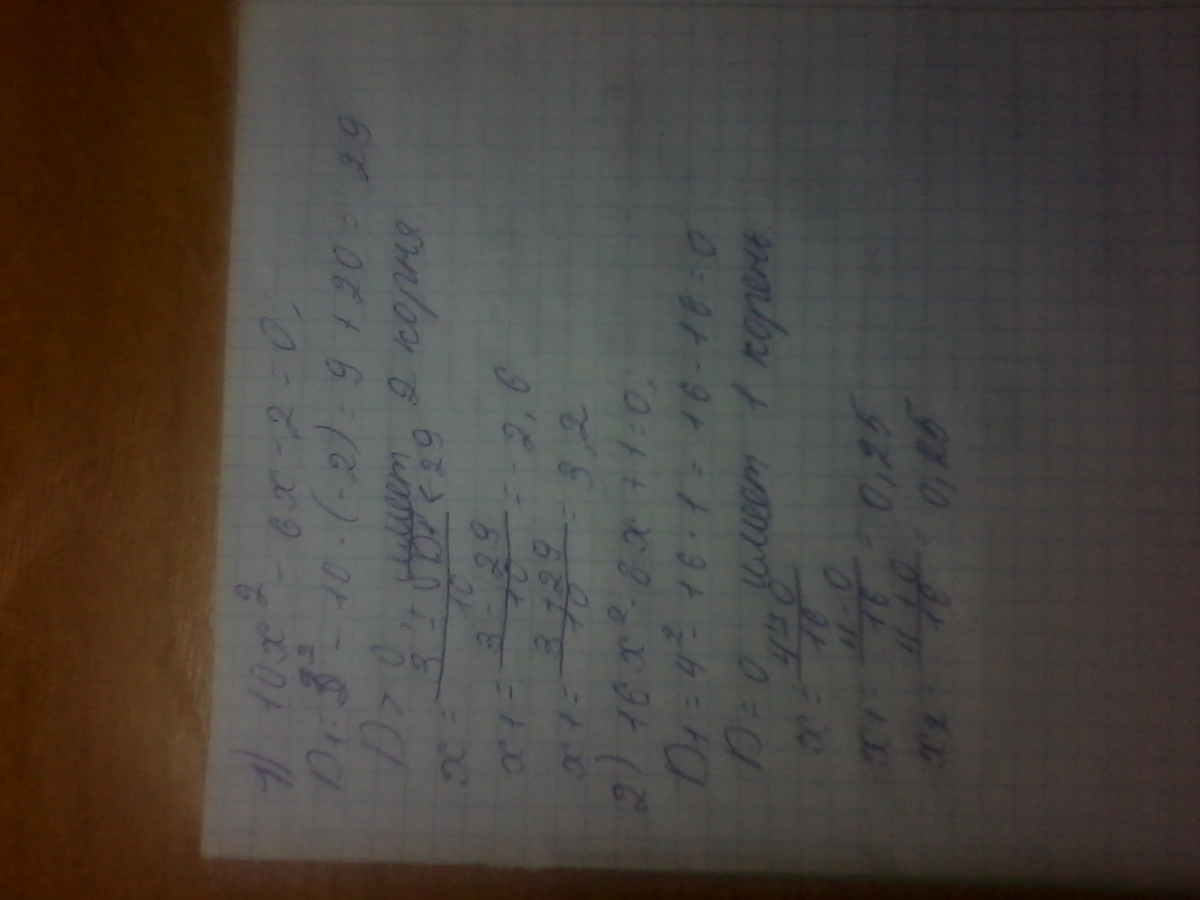 1) 10x² - 6x - 2 = 0;
D1 = 3² - 10 · (-2) = 9 + 20 = 29
D > 0 имеет 2 корня
x = 3 ± √D1 < 29 / 10
x1 = 3 - 29 / 10 = -2,6
x1 = 3 + 29 / 10 = 3,2
2) 16x² - 8x + 1 = 0;
D1 = 4² - 16 · 1 = 16 - 16 = 0
D = 0 имеет 1 корень
x = 4 ± 0 / 16
x1 = 4 - 0 / 16 = 0,25
x2 = 4 + 0 / 16 = 0,25